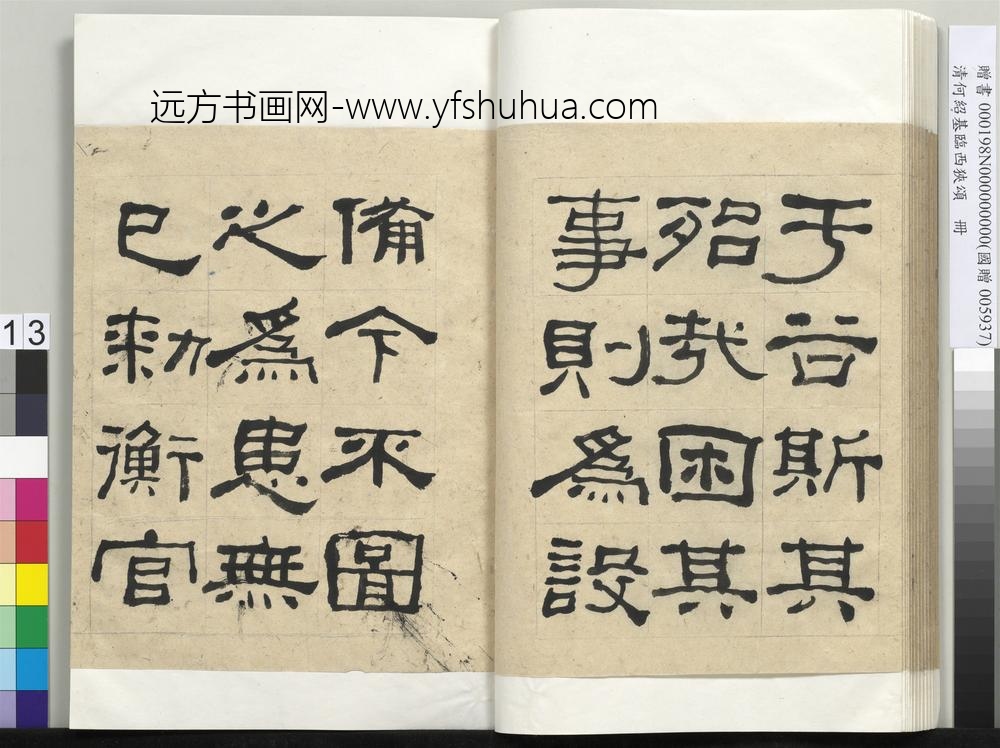 远方书画网-www.yfshuhua.com
贈書 000198N000000000(國贈 005937)
清何紹基臨西狹頌 冊
于谷斯其
殆哉困其
事則爲設
備今不圖
之爲患無
已勑衡官
13